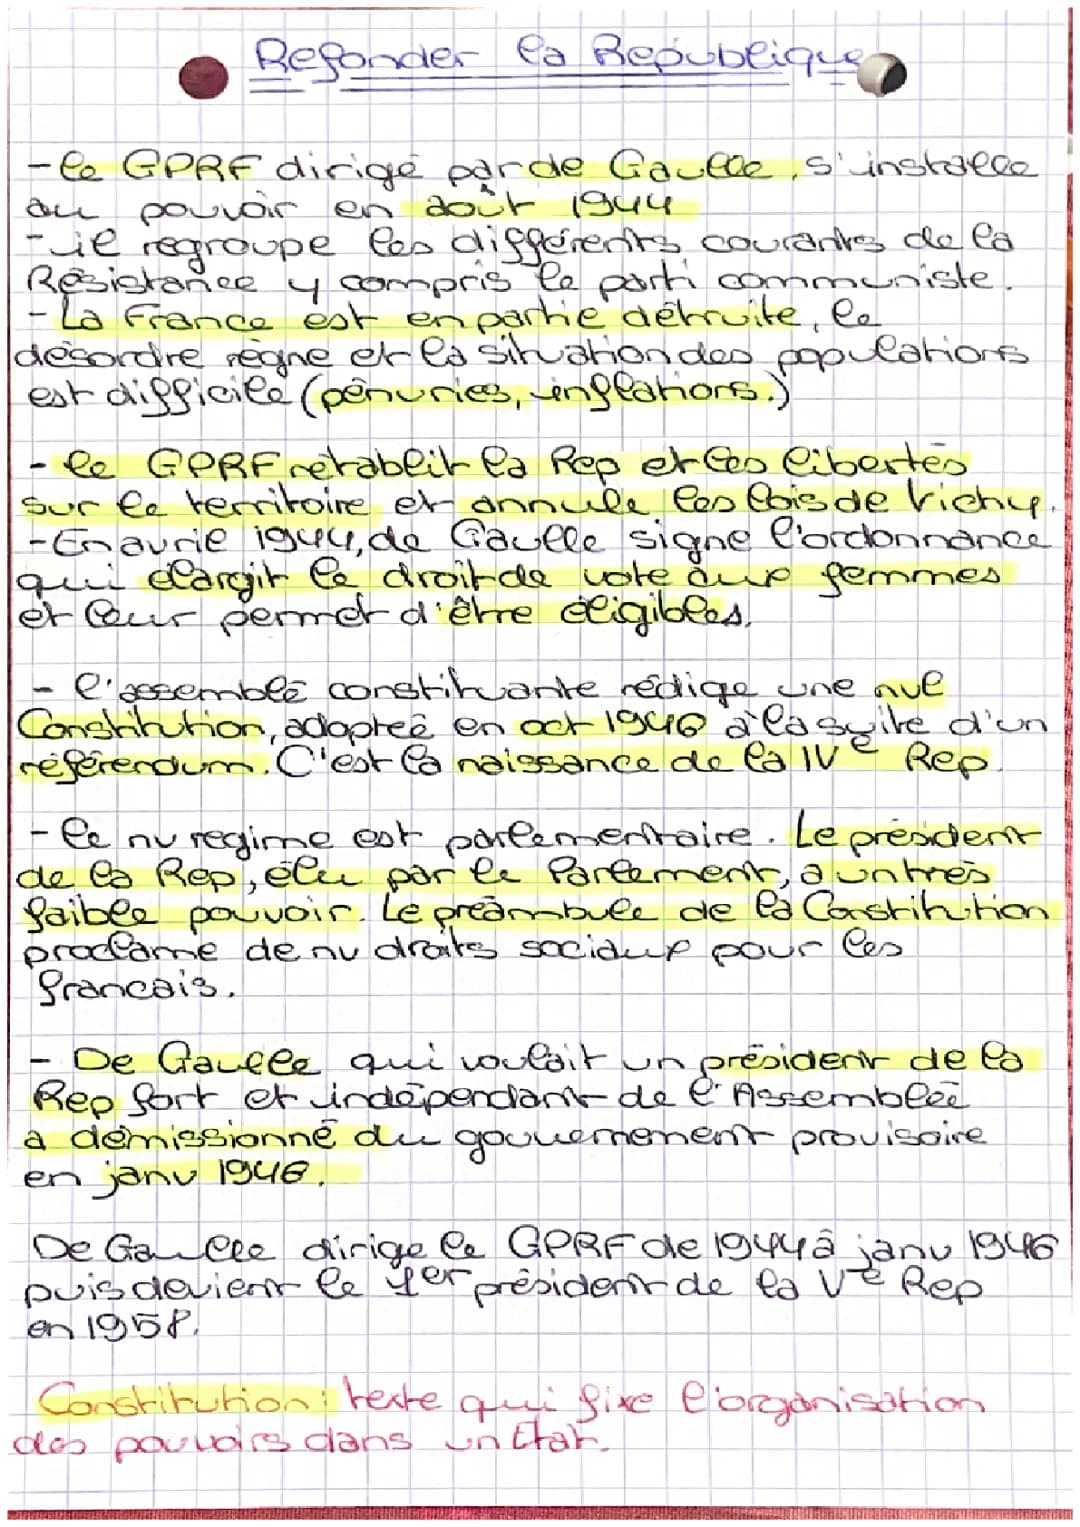 Refonder la République
- le GPRF dirigé par de Gaulle, s'installe
au pouvoir en août 1944
- il regroupe les différents courants de la
Résistance y compris le parti communiste.
- La France est en partie détruite, le
désordre règne et la situation des populations
est difficile (pénuries, inflations.)
- le GPRF rétablit la Rep et les libertés
sur le territoire et annule les lois de Vichy.
- En avril 1944, de Gaulle signe l'ordonnance
qui élargit le droit de vote aux femmes
et leur permet d'être éligibles.
- l'assemblé constituante rédige une nvl
Constitution, adoptée en oct 1946 à la suite d'un
référendum. C'est la naissance de la IVe Rep.
- le nv regime est parlementaire. Le président
de la Rep, élu par le Parlement, a un très
faible pouvoir. Le préambule de la Constitution
proclame de nv droits sociaux pour les
francais.
- De Gaulle qui voulait un président de la
Rep fort et indépendant de l'Assemblée
a démissionné du gouvernement provisoire
en janv 1946.
De Gaulle dirige le GPRF de 1944 à janv 1946
puis devient le 1er président de la Ve Rep
en 1958.
Constitution : texte qui fixe l'organisation
des pouvoirs dans un Etat.